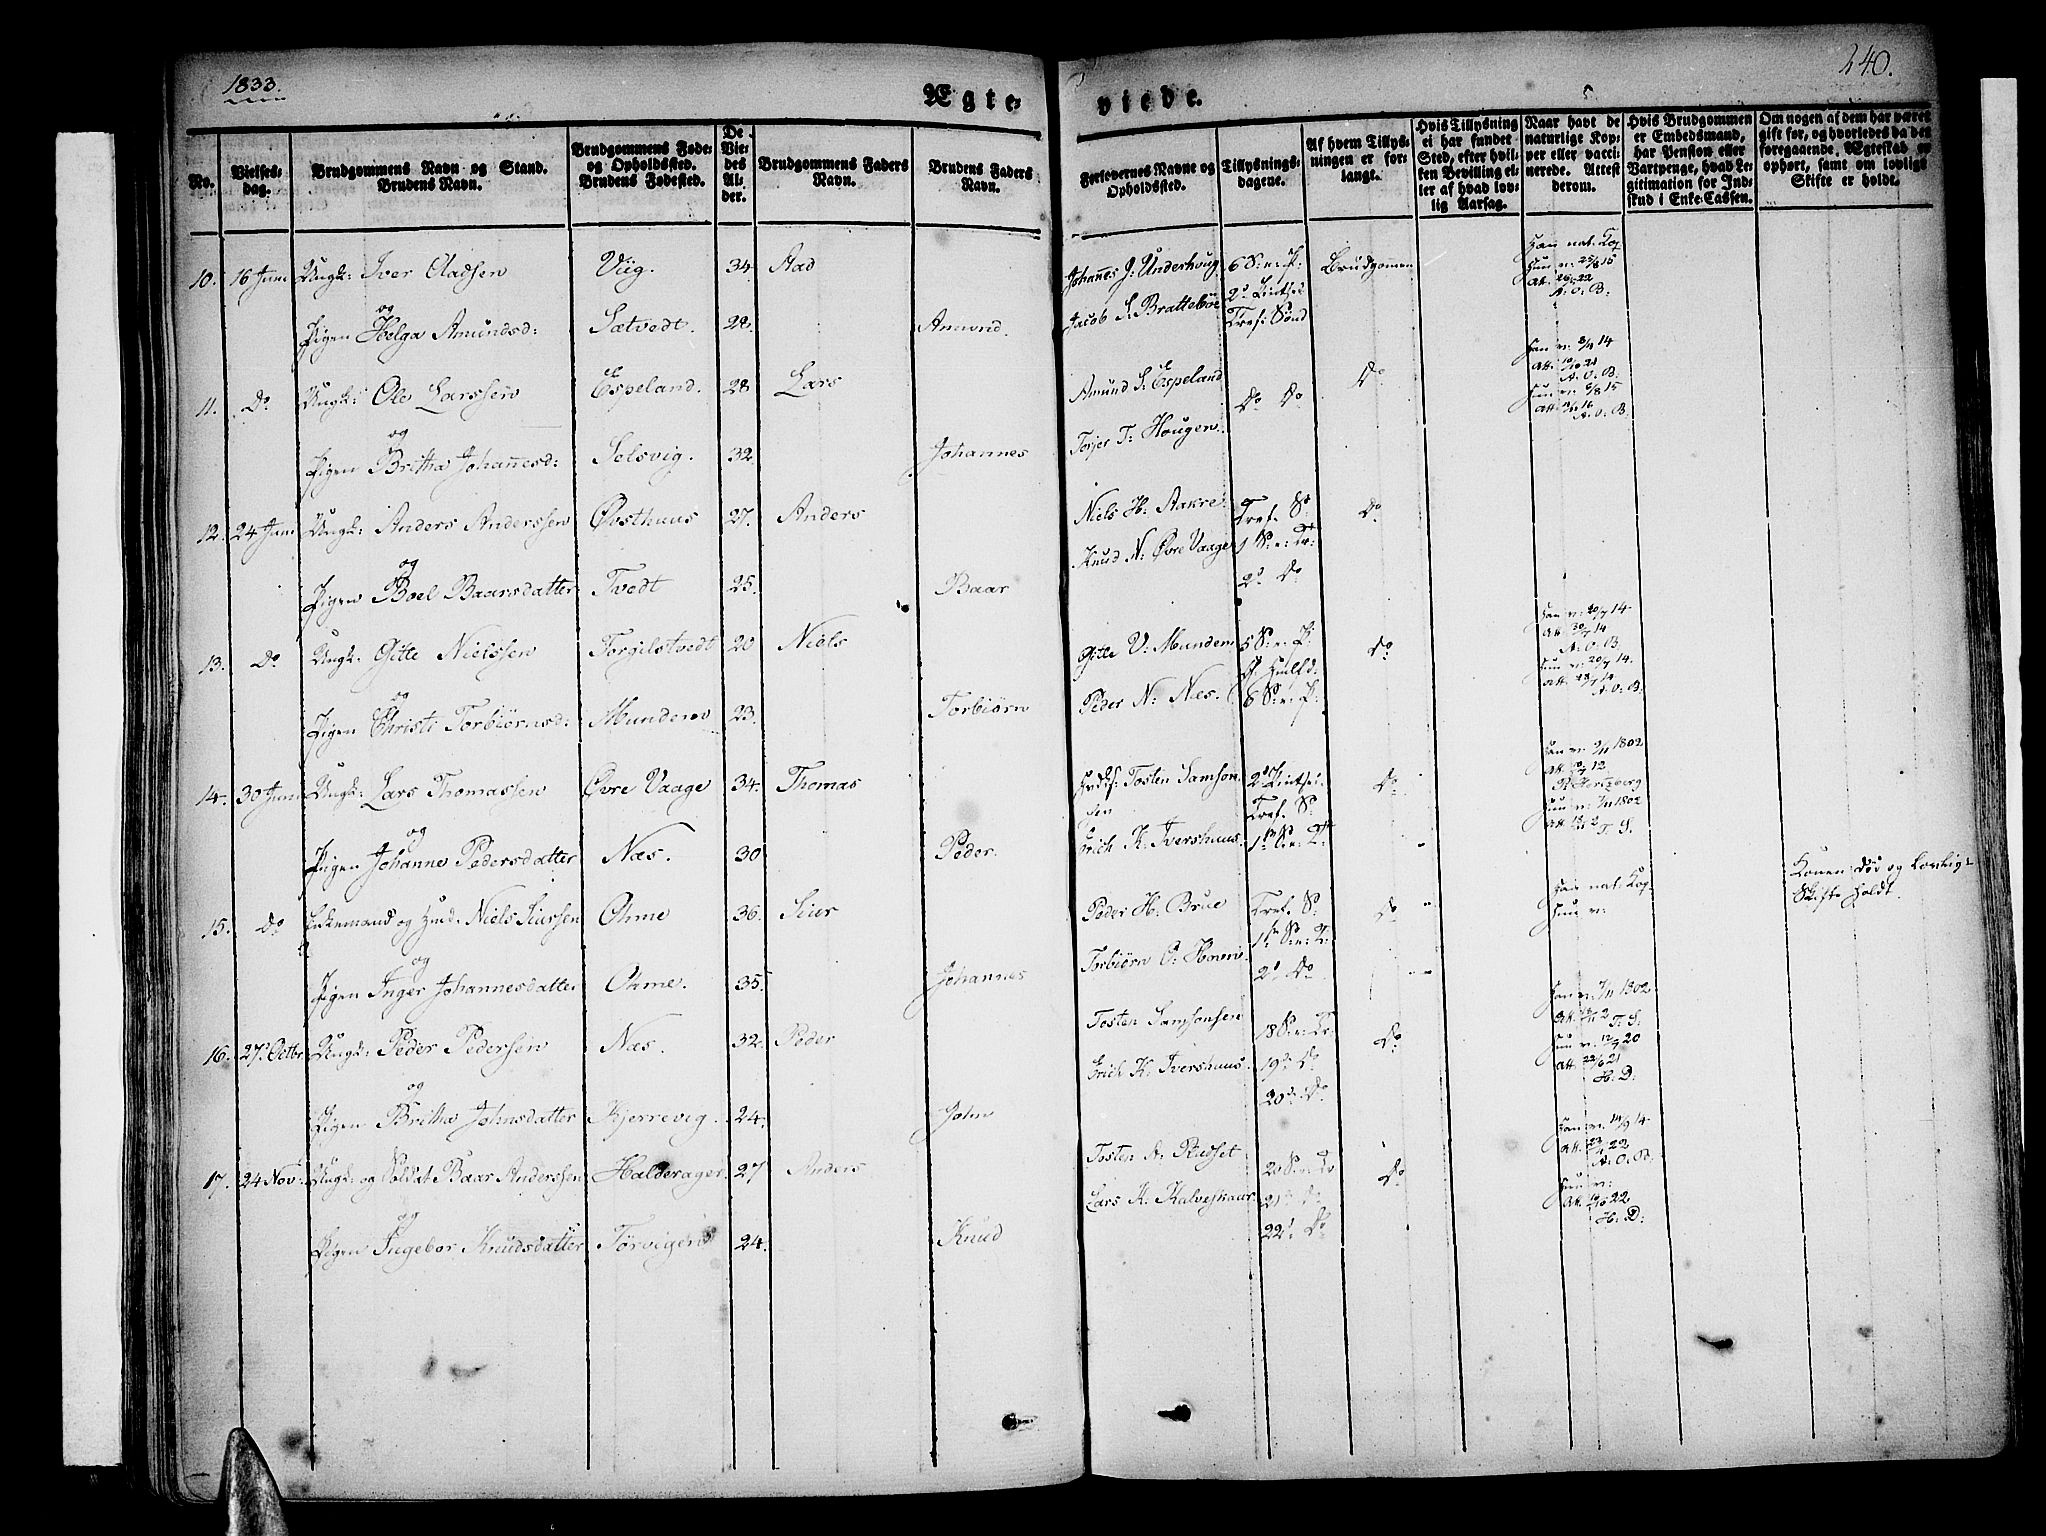 1833.
240.
Ægte-
viede.
No.
Vielses-dag.
Brudgommens Navn og Stand.
Brudens Navn.
Brudgommens Føde-
og Opholdssted.
Brudens Fødested.
De
Vie-
des
Al-
der.
Brudgommens Faders
Navn.
Brudens Faders
Navn.
Forlovernes Navne og
Opholdssted.
Tillysnings-
dagene.
Af hvem Tillys-
ningen er for-
langt.
Hvis Tillysning
ei har fundet
Sted, efter hvil-
ken Bevilling el-
ler af hvad lov-
lig Aarsag.
Naar havt de
naturlige Kop-
per eller vacci-
nerede. Attest
derom.
Hvis Brudgommen
er Embedsmand,
har Pension eller
Vartpenge, hvad Le-
gitimation for Ind-
skud i Enke-Cassen.
Om nogen af dem har været
gift før, og hvorledes da det
foregaaende Ægteskab er
ophørt, samt om lovligt
Skifte er holdt.
10. 16 Juni Ungk: Iver Aadsen Viig. 34 Aad Johanes J: Underhoug 6 S: e: P: Brudgommen Han nat. Kop
og
Pigen Helga Amundsd: Sætvedt. 28 Amund. Jacob S: Bratteböe
Hun v: 25/8 15
A: O: B:
11. Do Ungk: Ole Larssen Espeland. 28 Lars Amund S: Espeland Do Do Do
og
Pigen Britha Johanesd: Selsvig. 32 Johannes Torjer T: Hougen
A: O: B:
12. 24 Juni Ungk: Anders Anderssen Østhuus 27. Anders Niels H: Aakre Tref. S: Do
og
Pigen Boel Baarsdatter Tvedt 25. Baar Knud N: Øvre Vaage 1 S: e: Tr:
2d Do
13. Do Ungk. Gitle Nielssen Torgilstvedt 20 Niels Gitle V: Mundem 5 S: e: P: Do
og
Pigen Christi Torbiörnsd: Mundem 23. Torbiörn Peder N: Næs. 6 S: e: P:
A: O: B:
14. 30 Juni Ungk: Lars Thomassen Øvre Vaage 34. Thomas Tosten Samson- Do
sen
og
Pigen Johanne Pedersdatter Næs. 30 Peder. Erich K: Ivershuus.
Hertzberg
15. Do Enkemand og Huusm. Niels Siursen Ohme 36. Siur Peder H: Brue Tref. S: Do Han nat: Kop.
Hun v:
Konen död og lovlig-
Skifte holdt.
og
Pigen Inger Johannesdatter Ohme. 35. Johannes Torbiörn O:
2d Do
16. 27. Octbr. Ungk: Peder Pedersen Næs. 32. Peder Tosten Samsonsen 18 S: e: Tr. Do
Han v: 7/11 1802
T: S:
og
Pigen Britha Johnsdatter Kjerrevig. 24. John Erich K: Ivershuus. 19d Do
20d Do
H: D:
17. 24 Nov: Ungk: og Soldat Baar Anderssen Halderager 27 Anders Tosten A: Rudset 20 S: e: Tr Do
A: O: B:
og
Pigen Ingebor Knudsdatter Törvigen 24. Knud Lars K: Kalveskaar 21d Do
22d Do
H: D: